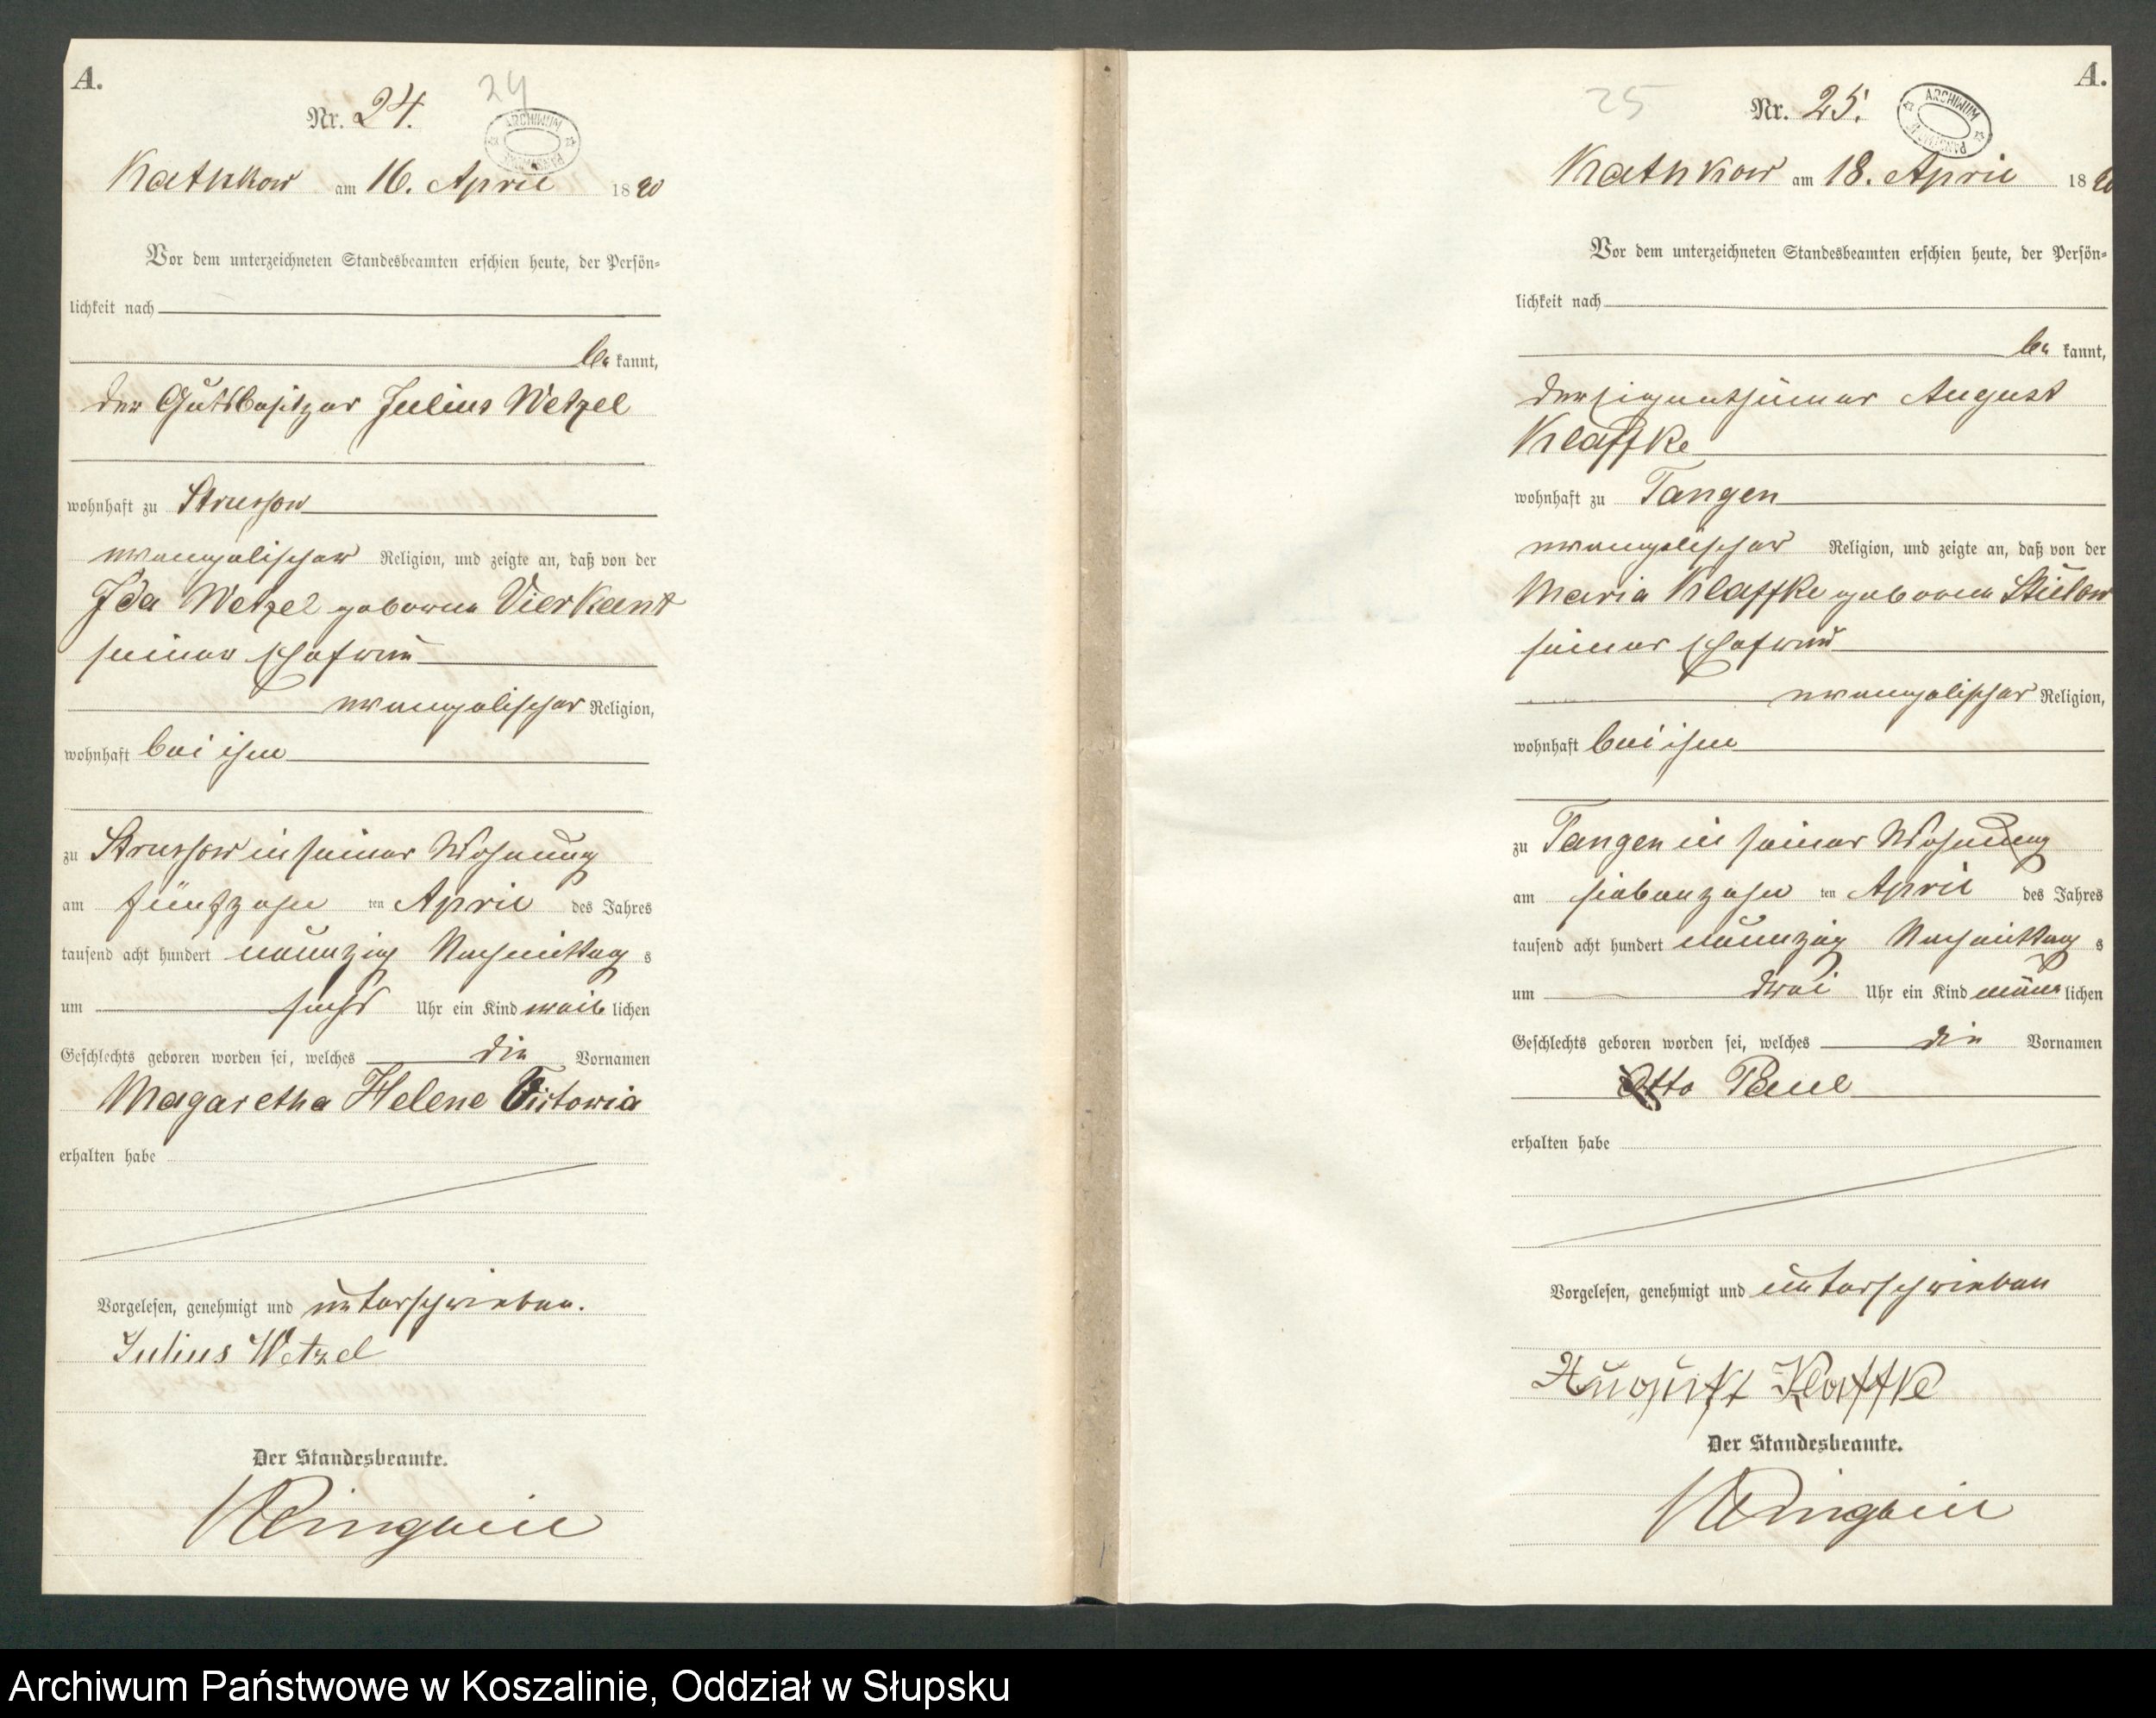 A.
Nr. 24.
24
ARCHIWUM
Kathkow am 16. April 1890
Vor dem unterzeichneten Standesbeamten erschien heute, der Persön-
lichkeit nach
be kannt,
der Gutsbesitzer Julius Wetzel
wohnhaft zu Strussow
evangelischer Religion, und zeigte an, daß von der
Ida Wetzel geborene Vierkant
seiner Ehefrau
evangelischer Religion,
wohnhaft bei ihm
zu Strussow in seiner Wohnung
am fünfzehn ten April des Jahres
tausend acht hundert neunzig Nachmittag s
um sechs Uhr ein Kind weib lichen
Geschlechts geboren worden sei, welches die Vornamen
Magaretha Helene Victoria
erhalten habe
Vorgelesen, genehmigt und unterschrieben.
Julius Wetzel
Der Standesbeamte.
A.
25
Nr. 25.
ARCHIWUM
Kathkow am 18. April 1890
Vor dem unterzeichneten Standesbeamten erschien heute, der Persön-
lichkeit nach
be kannt,
der Eigenthümer August
Klaffke
wohnhaft zu Tangen
evangelischer Religion, und zeigte an, daß von der
Maria Klaffke geborene Stielow
seiner Ehefrau
evangelischer Religion,
wohnhaft bei ihm
zu Tangen in seiner Wohnung
am siebenzehn ten April des Jahres
tausend acht hundert neunzig Nachmittag s
um drei Uhr ein Kind männ lichen
Geschlechts geboren worden sei, welches die Vornamen
Otto Paul
erhalten habe
Vorgelesen, genehmigt und unterschrieben
August Klaffke
Der Standesbeamte.
Archiwum Państwowe w Koszalinie, Oddział w Słupsku